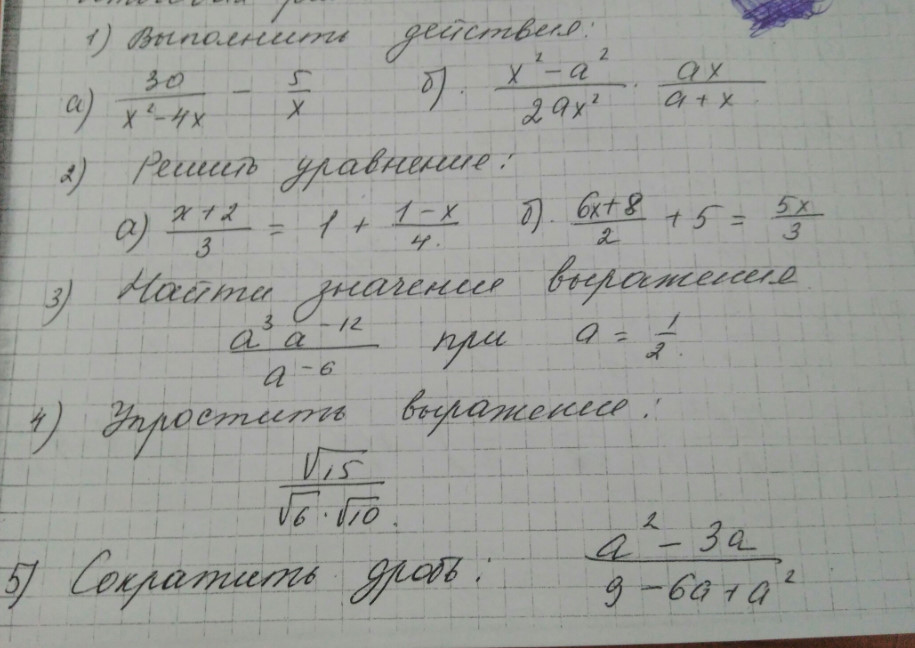 1) Выполнить действия:
а) 30/(x²-4x) - 5/x б). (x²-a²)/(2ax²) · ax/(a+x)
2) Решить уравнение:
а) (x+2)/3 = 1 + (1-x)/4. б). (6x+8)/2 + 5 = 5x/3
3) Найти значение выражения
(a³ a⁻¹²)/a⁻⁶ при a = 1/2.
4) Упростить выражение:
√15/(√6·√10).
5) Сократить дробь: (a²-3a)/(9-6a+a²)